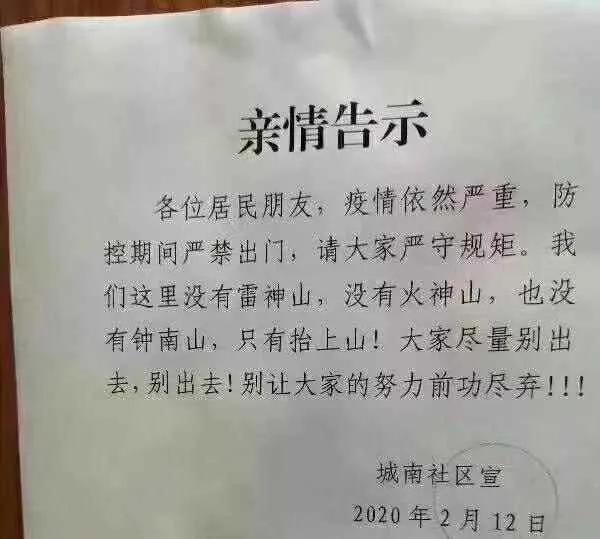 亲情告示
各位居民朋友，疫情依然严重，防
控期间严禁出门，请大家严守规矩。我
们这里没有雷神山，没有火神山，也没
有钟南山，只有抬上山！大家尽量别出
去，别出去！别让大家的努力前功尽弃！！！
城南社区宣
2020年2月12日